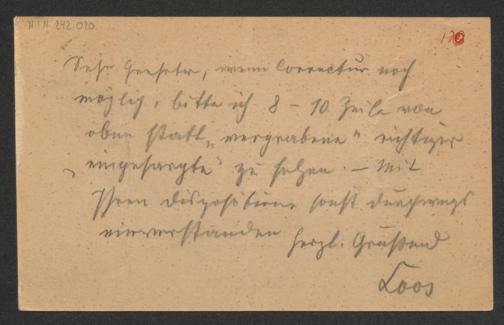 H.I.N. 242.020
Sehr Geehrter, wenn Correctur noch
möglich, bitte ich 8 – 10. Zeile von
oben statt „vergrabene“ richtiger
„eingesargte“ zu setzen. – Mit
Ihren Dispositionen sonst durchwegs
einverstanden herzl. Grüßend
Loos